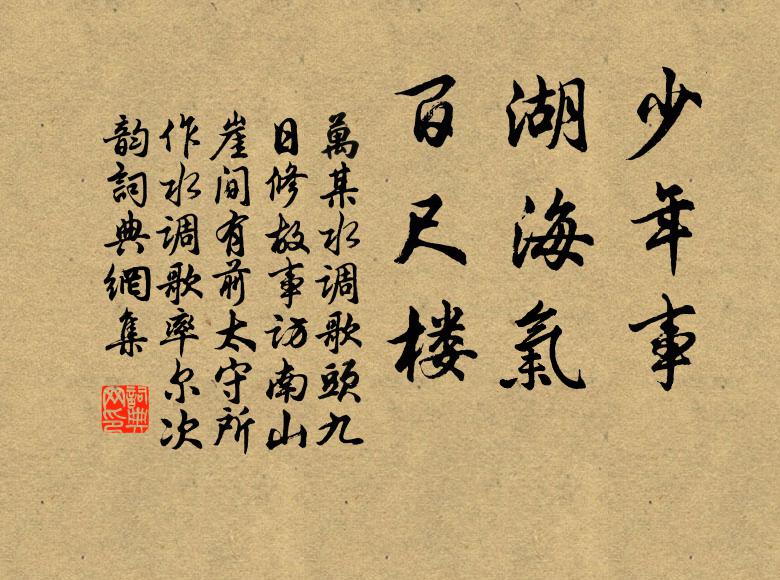 少年事
湖海氣
百尺楼
萬某水调歌頭九
日修故事访南山
崖间有前太守所
作水调歌率尔次
韵詞典網集
詞典網印